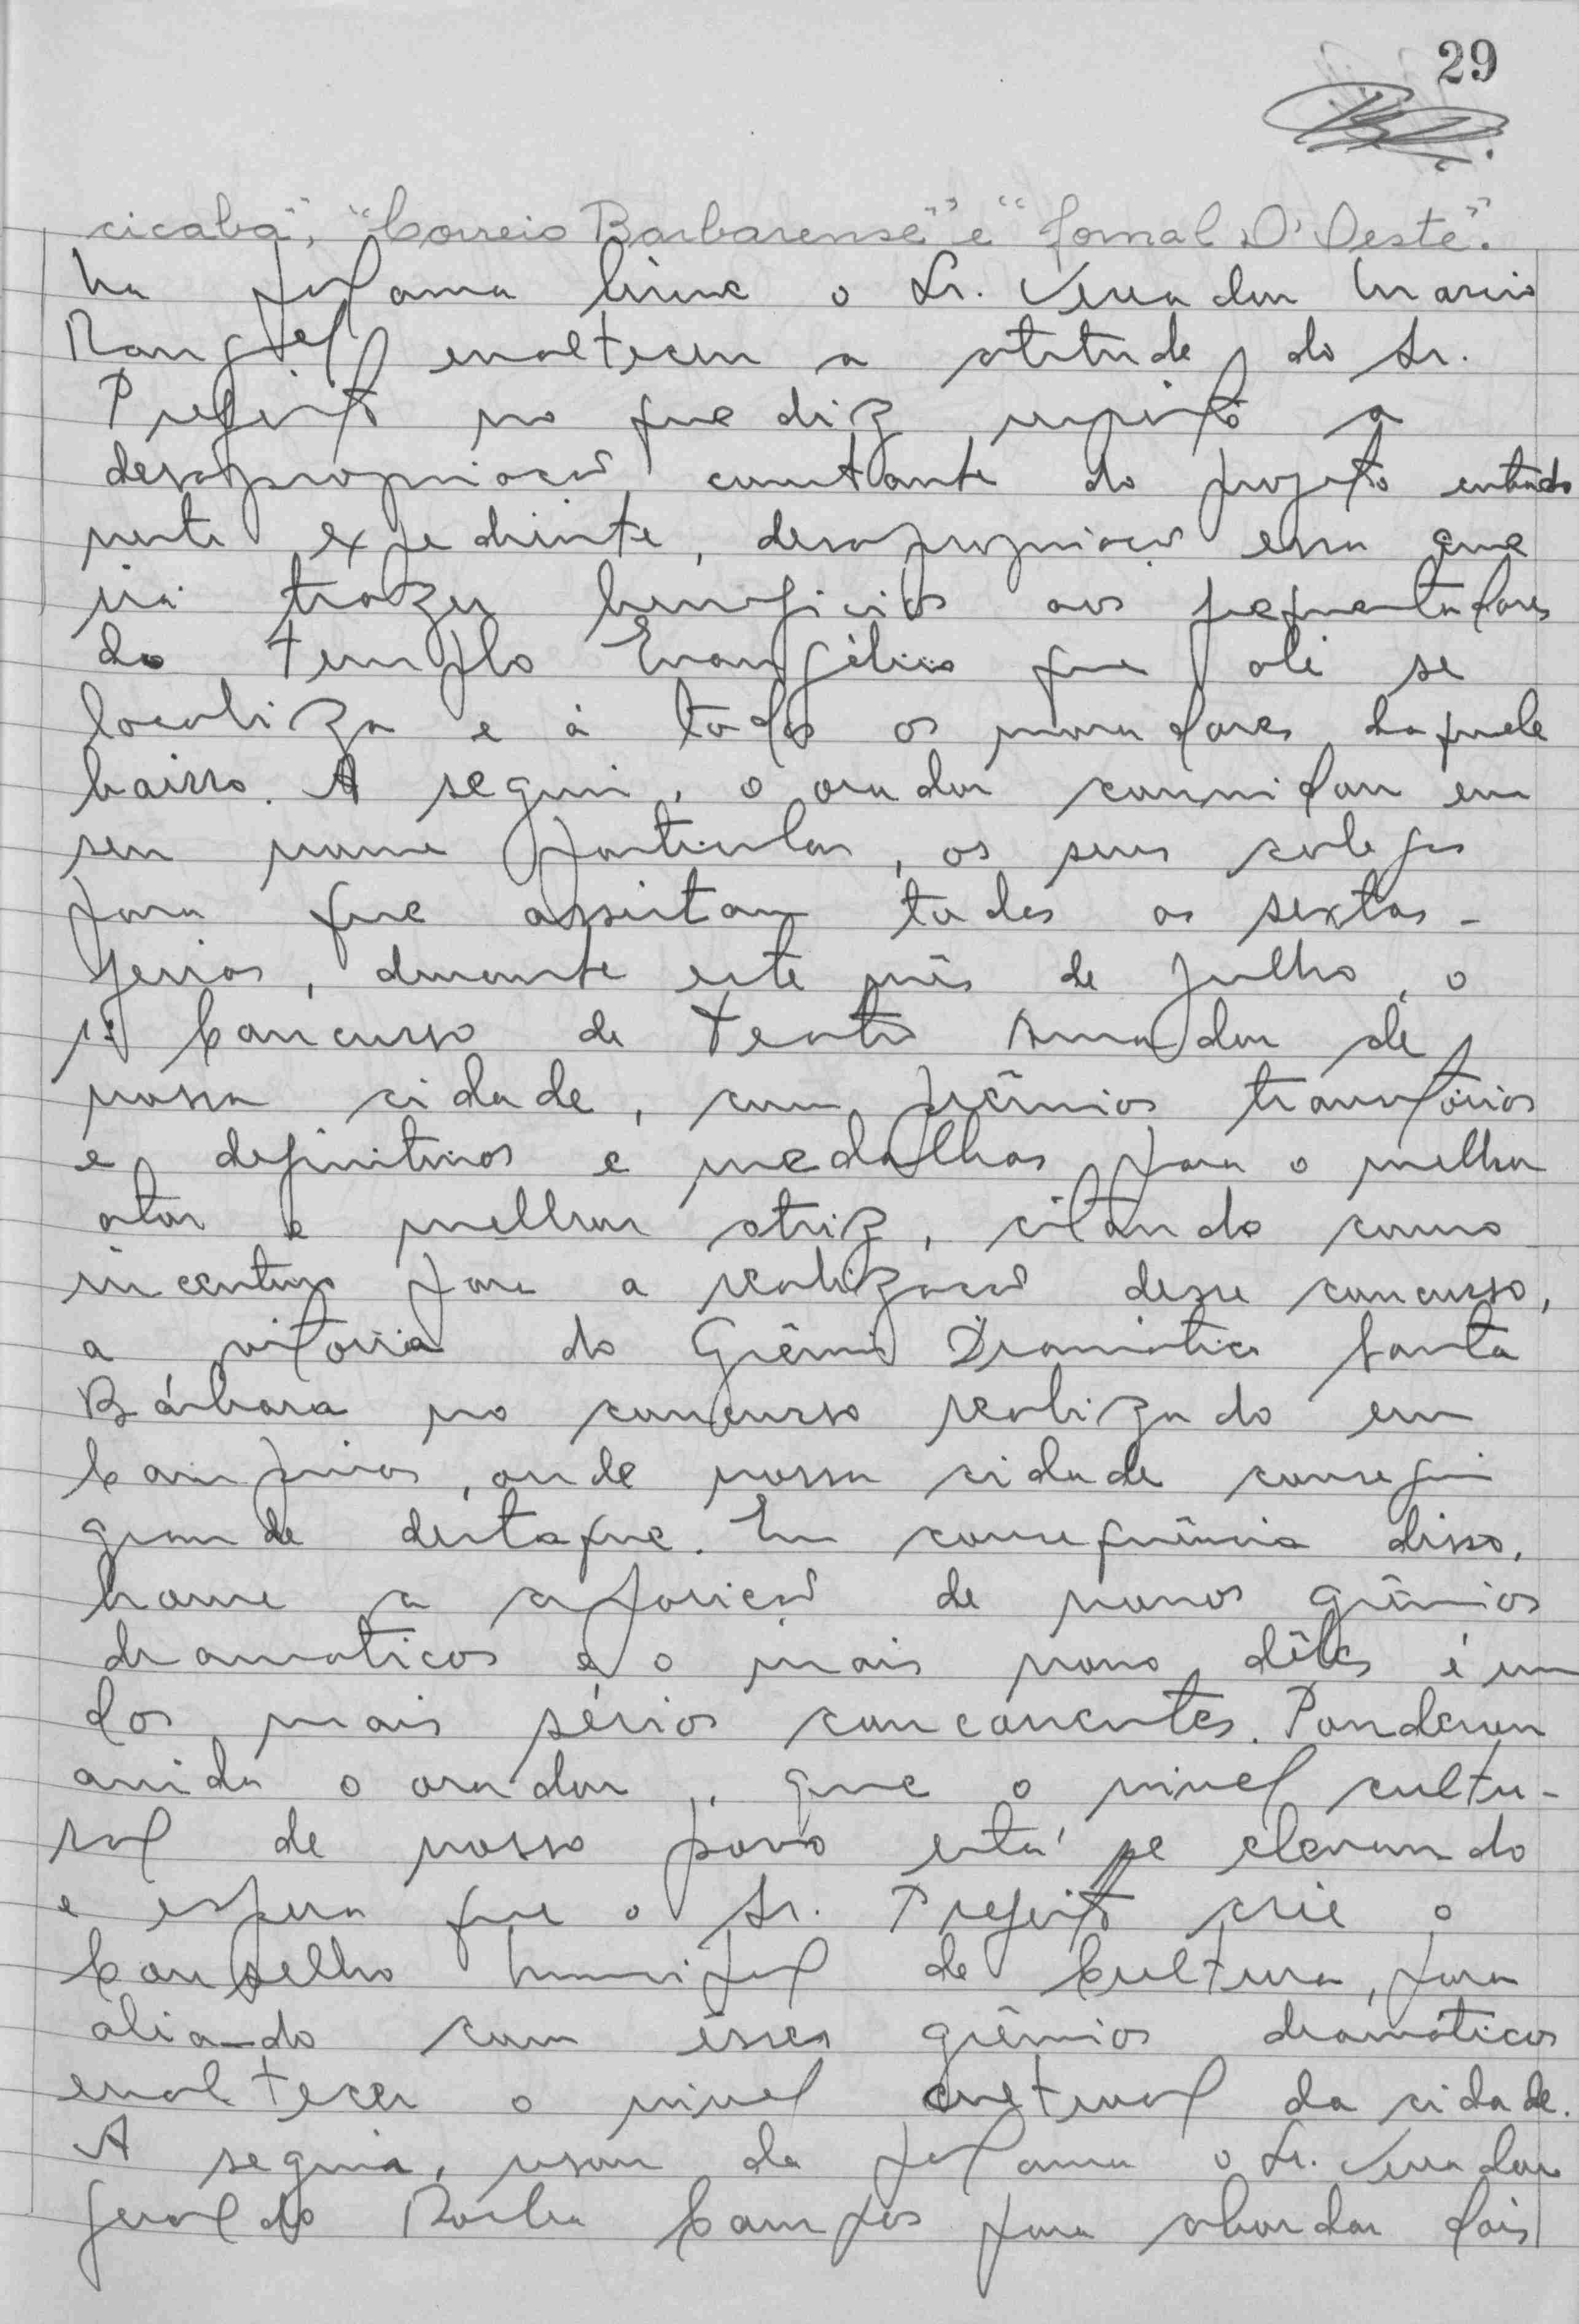 29
cicaba", "Correio Barbarense" e "Jornal D'Oeste".
Na palavra livre o Sr. Vereador Mario
Rangel enalteceu a atitude do Sr.
Prefeito no que diz respeito a
desapropriação constante do projeto entrado
neste expediente, desapropriação essa que
irá trazer beneficios aos frequentadores
do Templo Evangélico que ali se
localiza e à todos os moradores daquele
bairro. A seguir, o orador convidou em
seu nome particular, os seus colegas
para que assistam todas as sextas-
feiras, durante este mês de Julho, o
1º Concurso de Teatro Amador de
nossa cidade, com prêmios transitórios
e definitivos e medalhas para o melhor
ator e melhor atriz, citando como
incentivo para a realização desse concurso,
a vitória do Grêmio Dramático Santa
Bárbara no concurso realizado em
Campinas, onde nossa cidade conseguiu
grande destaque. Em consequência disso,
houve a aparição de novos grêmios
dramaticos e o mais novo dêles é um
dos mais sérios concorrentes. Ponderou
ainda o orador, que o nivel cultu-
ral de nosso povo está se elevando
e espera que o Sr. Prefeito crie o
Conselho Municipal de Cultura, para
aliado com êsses grêmios dramáticos
enaltecer o nivel cultural da cidade.
A seguir, usou da palavra o Sr. Vereador
Geraldo Rocha Campos para abordar dois